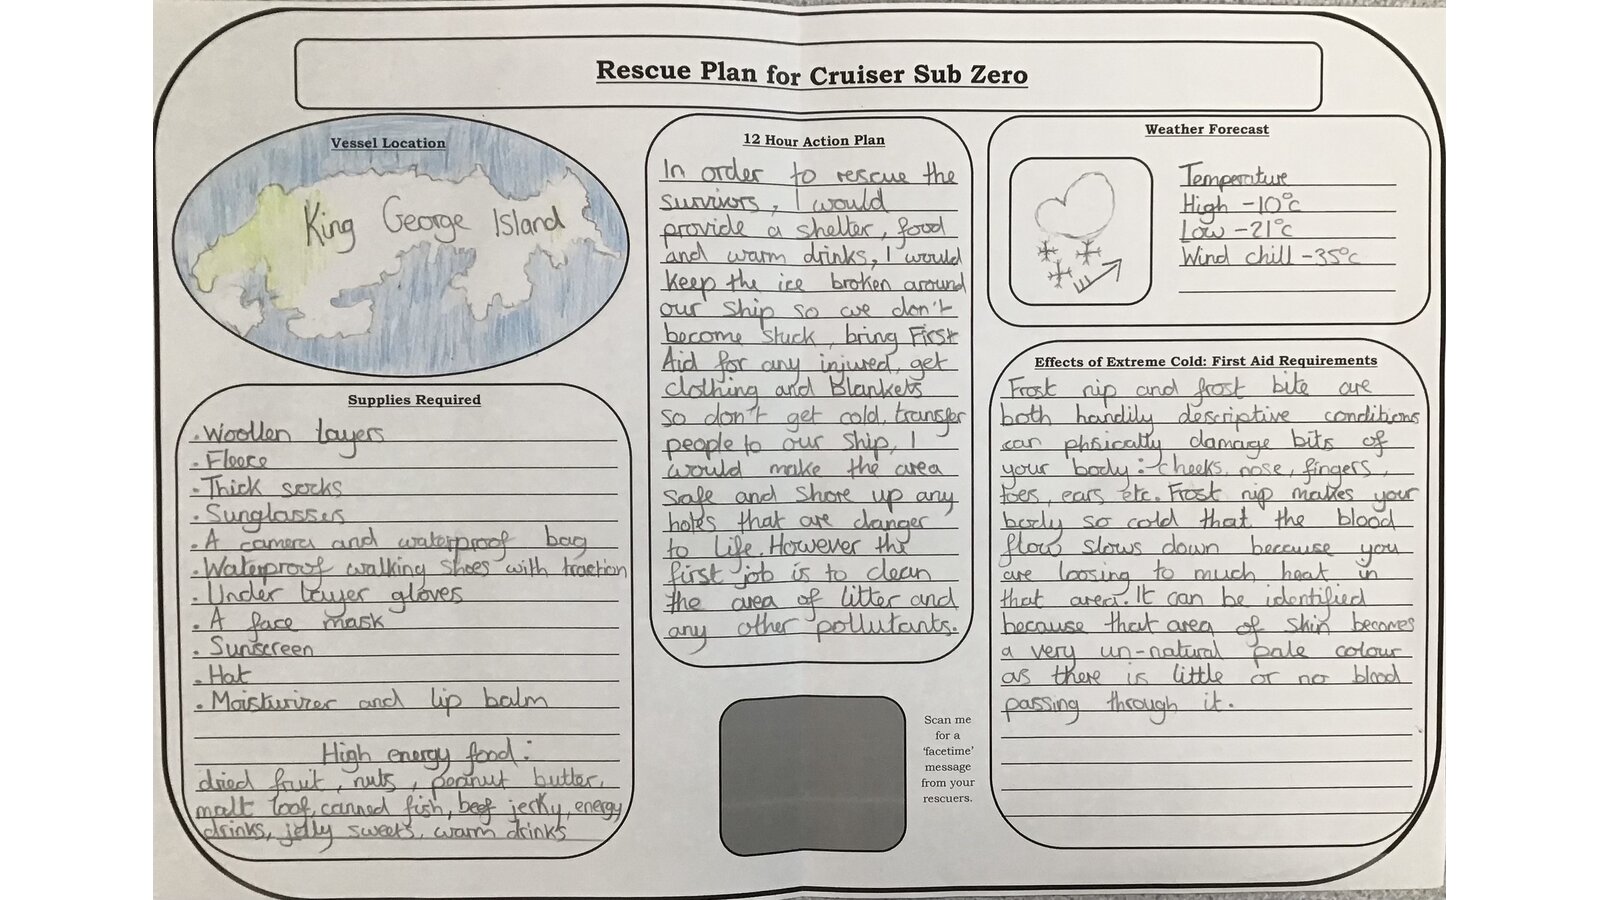 Rescue Plan for Cruiser Sub Zero
Vessel Location
King George Island
Supplies Required
. Woollen layers
. Fleece
. Thick socks
. Sunglasses
. A camera and waterproof bag
. Waterproof walking shoes with traction
. Under layer gloves
. A face mask
. Sunscreen
. Hat
. Moisturizer and lip balm
High energy food:
dried fruit, nuts, peanut butter,
malt loaf, canned fish, beef jerky, energy
drinks, jelly sweets, warm drinks
12 Hour Action Plan
In order to rescue the
survivors, I would
provide a shelter, food
and warm drinks, I would
keep the ice broken around
our ship so we don't
become stuck, bring First
Aid for any injured, get
clothing and Blankets
so don't get cold, transfer
people to our ship, I
would make the area
safe and shore up any
holes that are danger
to life. However the
first job is to clean
the area of litter and
any other pollutants.
Scan me
for a
'facetime'
message
from your
rescuers.
Weather Forecast
Temperature
High -10°c
Low -21°c
Wind chill -35°c
Effects of Extreme Cold: First Aid Requirements
Frost nip and frost bite are
both handily descriptive conditions
can phsically damage bits of
your body:- cheeks, nose, fingers,
toes, ears etc. Frost nip makes your
body so cold that the blood
flow slows down because you
are loosing to much heat in
that area. It can be identified
because that area of skin becomes
a very un-natural pale colour
as there is little or no blood
passing through it.